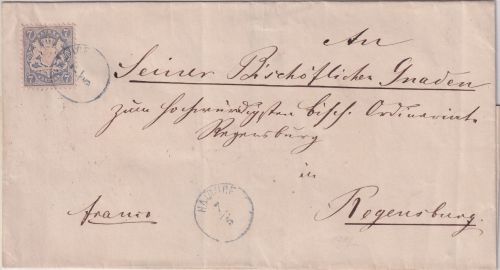 7 7
An
Seiner Bischöflichen Gnaden
zum hochwürdigsten bisch. Ordinariat
Regensburg
in
franco
Regensburg.